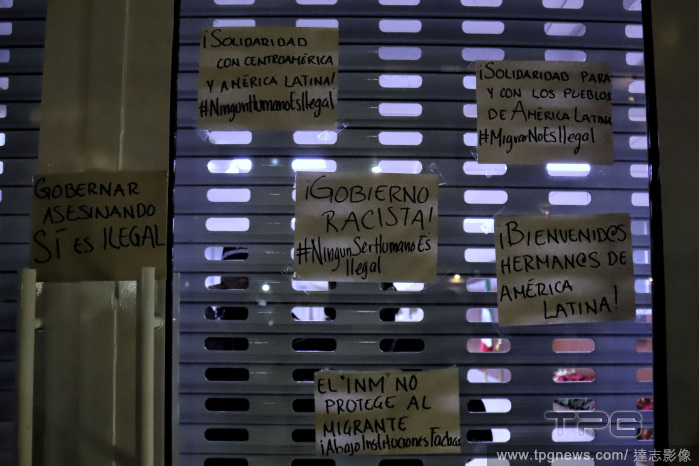 ¡SOLIDARIDAD
CON CENTROAMÉRICA
Y AMÉRICA LATINA!
#NingunHumanoEsIlegal
¡SOLIDARIDAD PARA
Y CON LOS PUEBLOS
DE AMÉRICA LATINA
#MigrarNoEsIlegal
GOBERNAR
ASESINANDO
SÍ ES ILEGAL
¡GOBIERNO
RACISTA!
#NingunSerHumanoEs
Ilegal
¡BIENVENID@S
HERMAN@S DE
AMÉRICA
LATINA!
EL "INM" NO
PROTEGE AL
MIGRANTE
¡AbajoInstituciones
TPG
www.tpgnews.com/ 達志影像